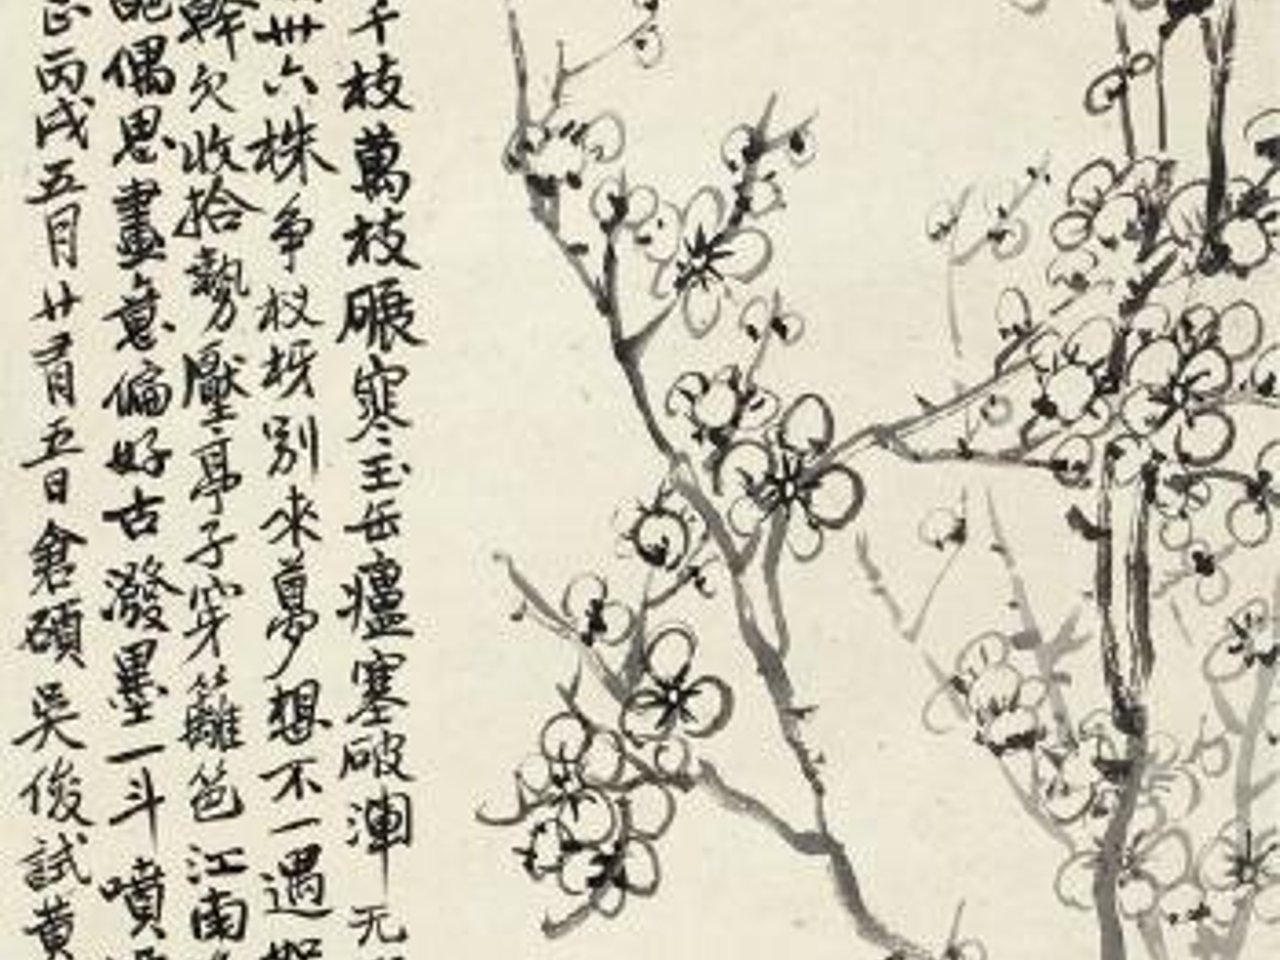 千枝萬枝碾寒玉缶癯寒破渾无
卅六株争权枒别来夢想不一遇
幹欠收拾勢壓亭子穿籬笆江南
偶思畫意偏好古潑墨一斗噴
正丙戌五月廿有五日倉碩吴俊試黄